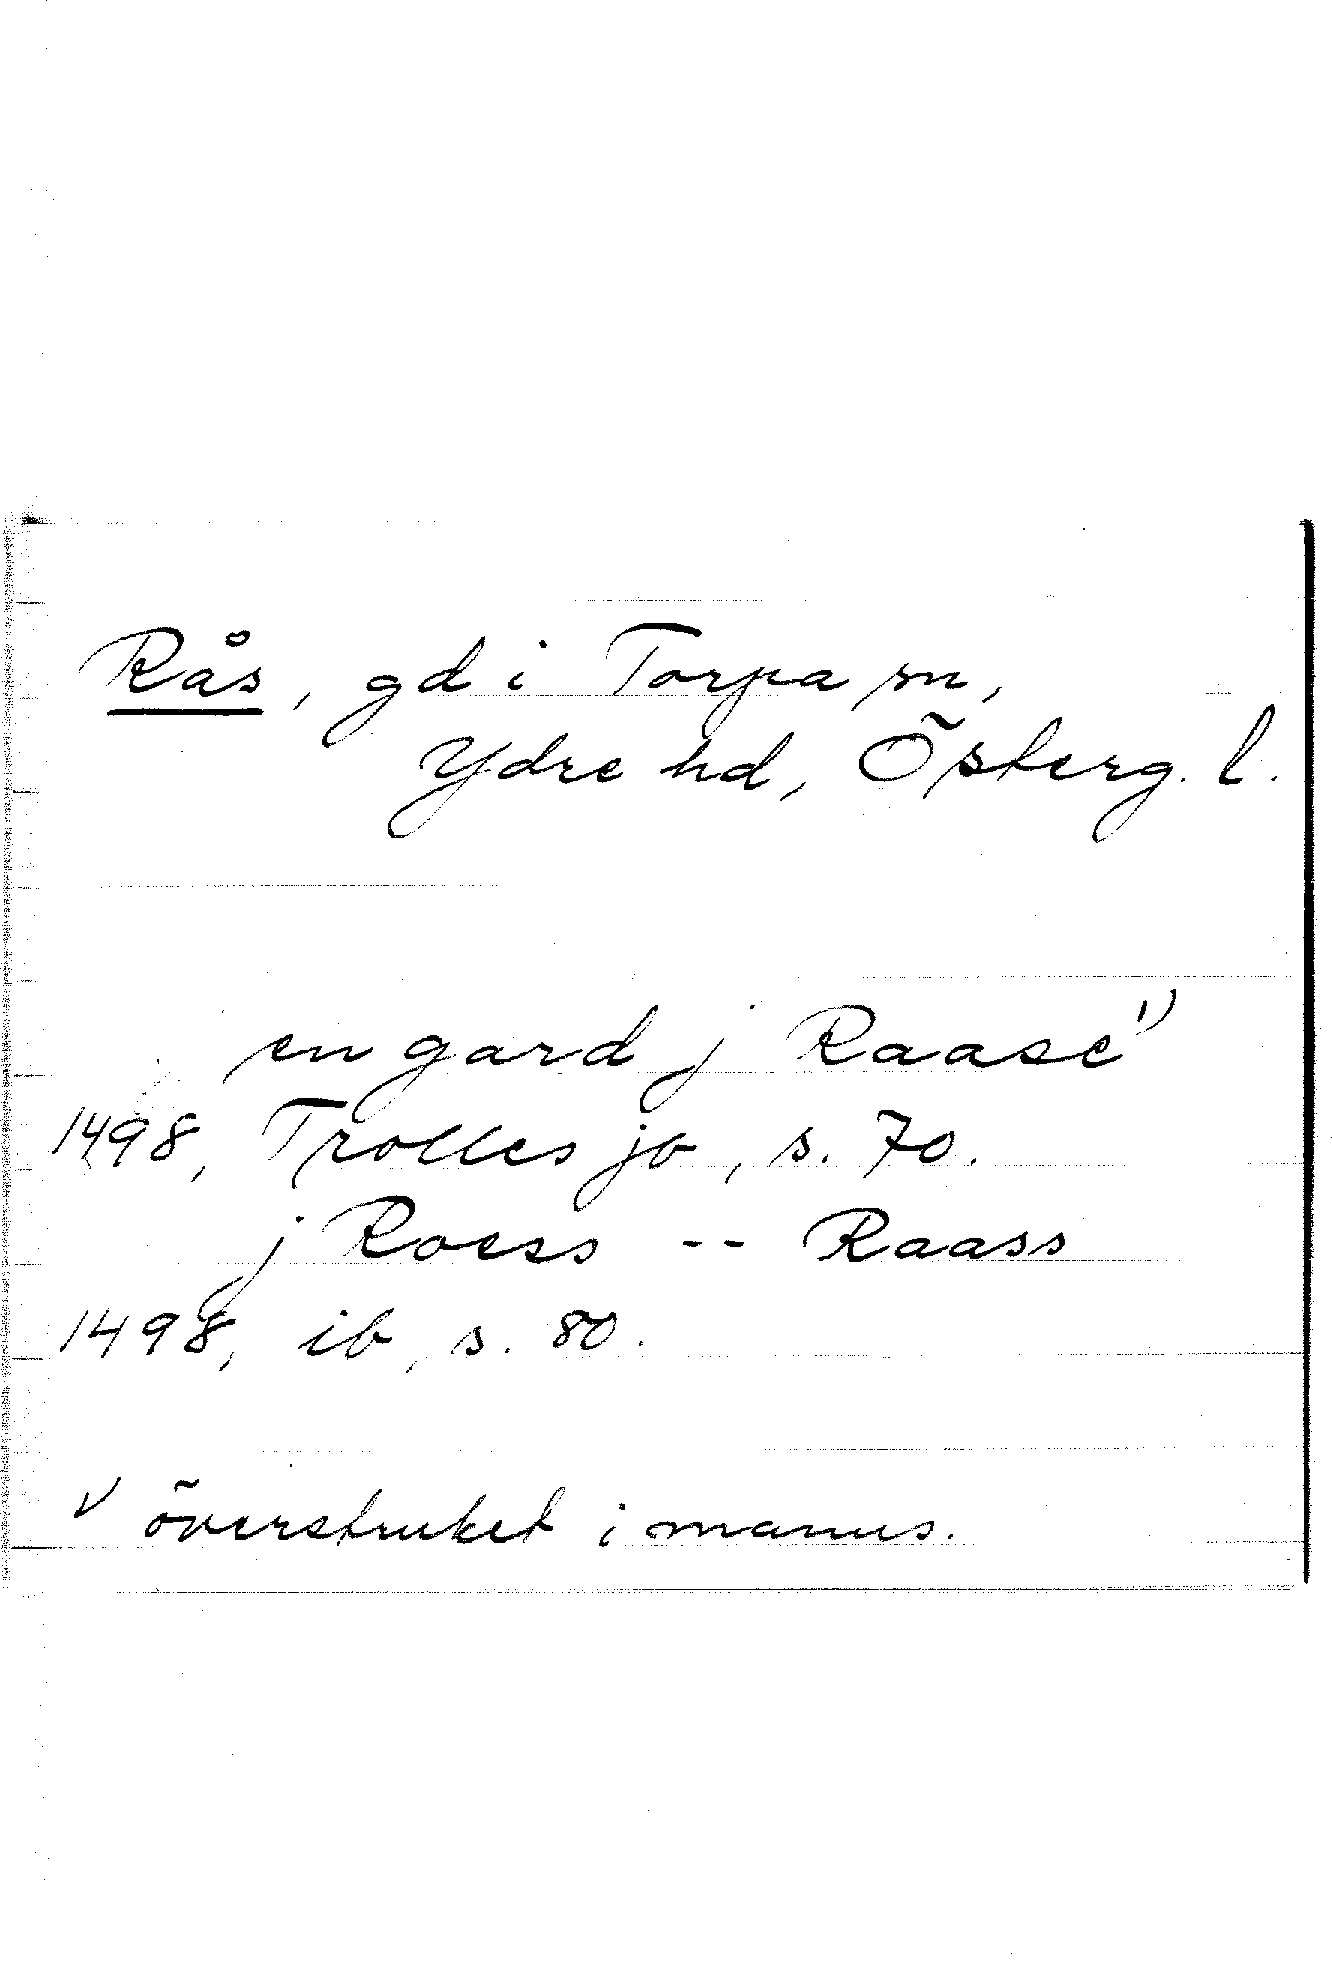 Rås, gd i Torpa sn,
Ydre hd, Österg. l.
en gard j Raase 1)
1498, Trolles jb, s. 70.
j Roess -- Raass
1498, ib, s. 80.
1) överstruket i manus.